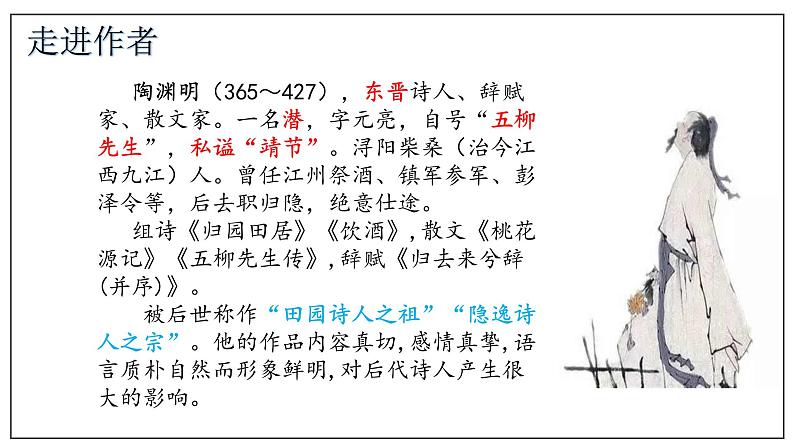 走进作者
陶渊明（365～427），东晋诗人、辞赋
家、散文家。一名潜，字元亮，自号“五柳
先生”，私谥“靖节”。浔阳柴桑（治今江
西九江）人。曾任江州祭酒、镇军参军、彭
泽令等，后去职归隐，绝意仕途。
组诗《归园田居》《饮酒》,散文《桃花
源记》《五柳先生传》,辞赋《归去来兮辞
(并序)》。
被后世称作“田园诗人之祖”“隐逸诗
人之宗”。他的作品内容真切,感情真挚,语
言质朴自然而形象鲜明,对后代诗人产生很
大的影响。